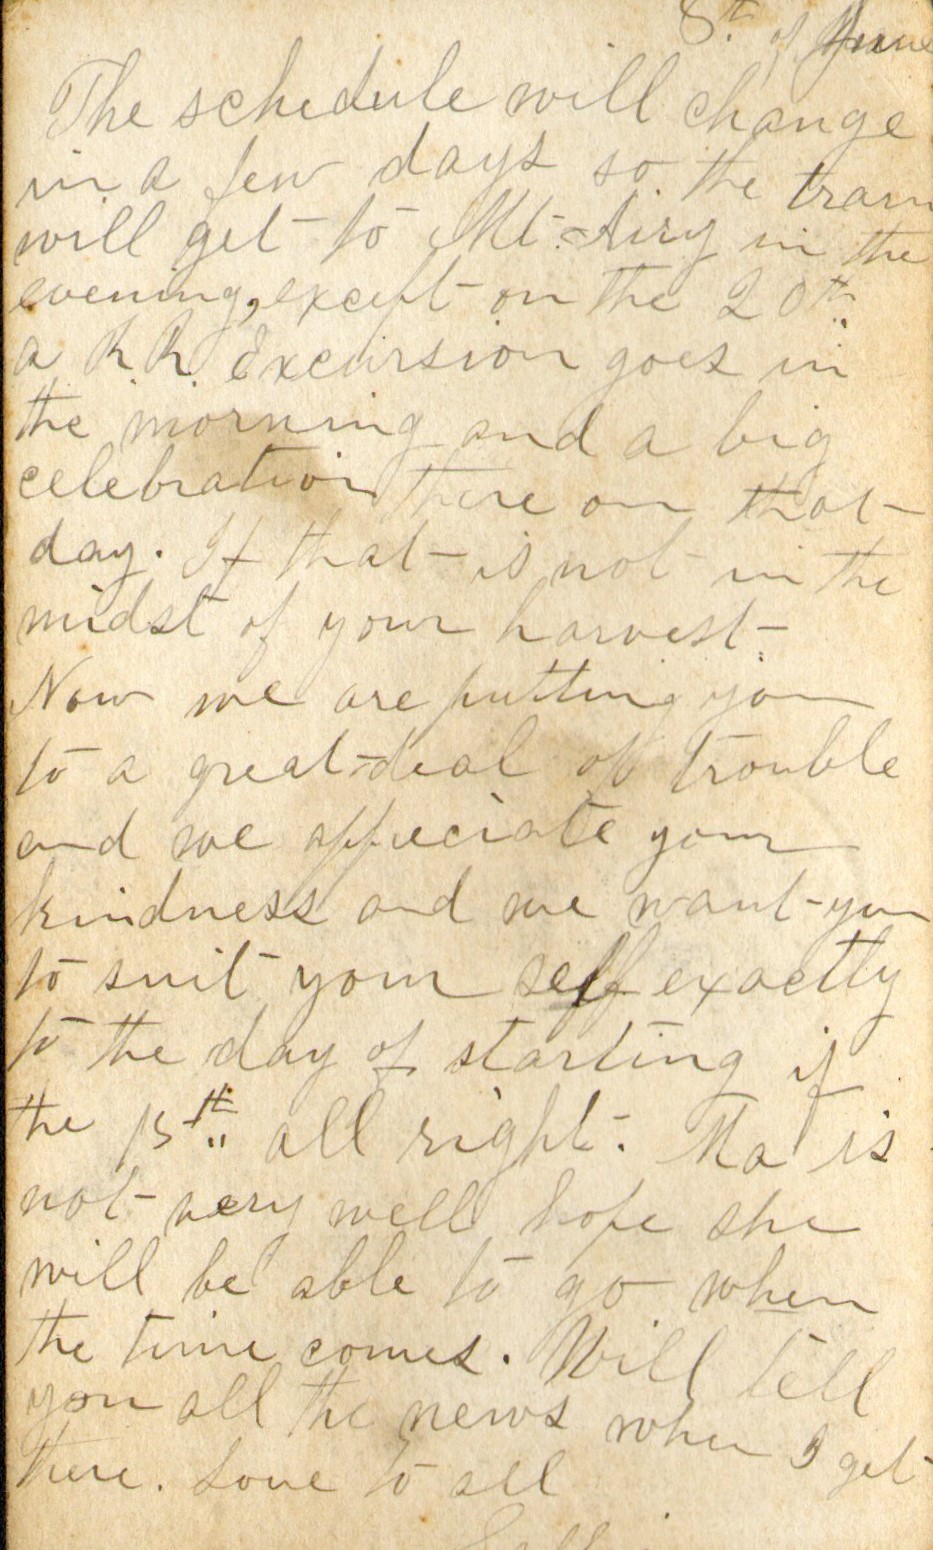 8th of June
The schedule will change
in a few days so the train
will get to Mt. Airy in the
evening, except on the 20th
a R.R. Excursion goes in
the morning and a big
celebration there on that
day. If that is not in the
midst of your harvest.
Now we are putting you
to a great-deal of trouble
and we appreciate your
kindness and we want you
to suit your self exactly
to the day of starting if
the 15th all right. Ma is
not very well hope she
will be able to go when
the time comes. Will tell
you all the news when I get
there. Love to all